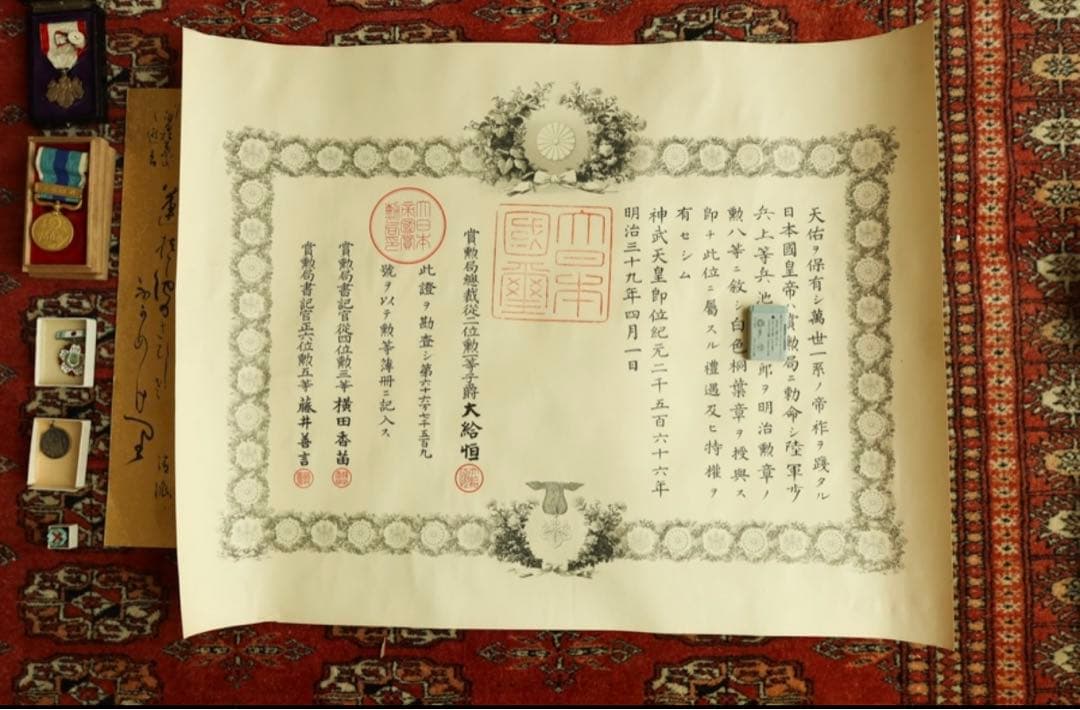 天佑ヲ保有シ萬世一系ノ帝祚ヲ踐タル
日本國皇帝ハ賞勲局ニ勅命シ陸軍歩
兵上等兵池 郎ヲ明治勲章ノ
勲八等ニ敘シ白色桐葉章ヲ授與ス
即チ此位ニ屬スル禮遇及ヒ特權ヲ
有セシム
神武天皇即位紀元二千五百六十六年
明治三十九年四月一日
大日本國璽
賞勲局總裁從二位勲一等子爵大給恒
此證ヲ勘査シ第六十六万七千五百九
號ヲ以テ勲等簿册ニ記入ス
大日本帝國賞勲局印
賞勲局書記官從四位勲三等横田香苗
賞勲局書記官正六位勲五等藤井善言